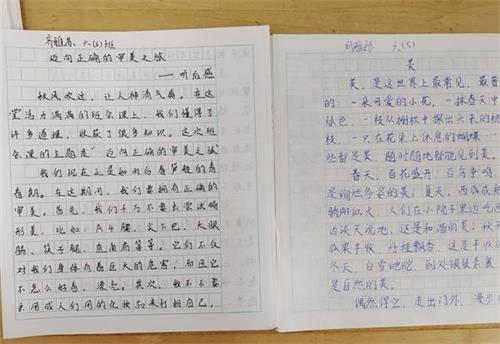 六(5)班
迈向正确的审美之旅
——听后感
秋风吹过，让人神清气爽。在这
堂活力满满的班会课上，我们懂得了
许多道理，收获了很多知识。这次班
会课的主题是"迈向正确的审美之旅"
我们现在正是如雨后春笋般的青
春期。在这期间，我们要拥有正确的
审美。首先，我们千万不要去尝试畸
形美，比如：A4腰，尖下巴，大眼
睛、筷子腿、直角肩等等。它们不仅
对我们身体有着巨大的危害，而且它
不怎么好看、漂亮。其次，我不不要
去用成人们用的化妆品来打扮自己。
六(5)
美
美，是这世界上最常见，最普
的：一朵可爱的小花，一抹春天中
绿色，一枝从栅栏中探出头来的桃
枝，一只在花朵上休息的蝴蝶
些皆是美，随时随地皆能见到美。
春天，百花盛开，百鸟争鸣，
是绚烂多姿的美；夏天，西瓜成熟
骄阳似火，人们在小院子里边吃西
边谈天说地，这是和谐的美；秋
瓜果丰收，丹桂飘香，这是丰收
冬天，白雪皑皑，到处银装素裹
是自然的美。
偶然得空，走出门外，漫步